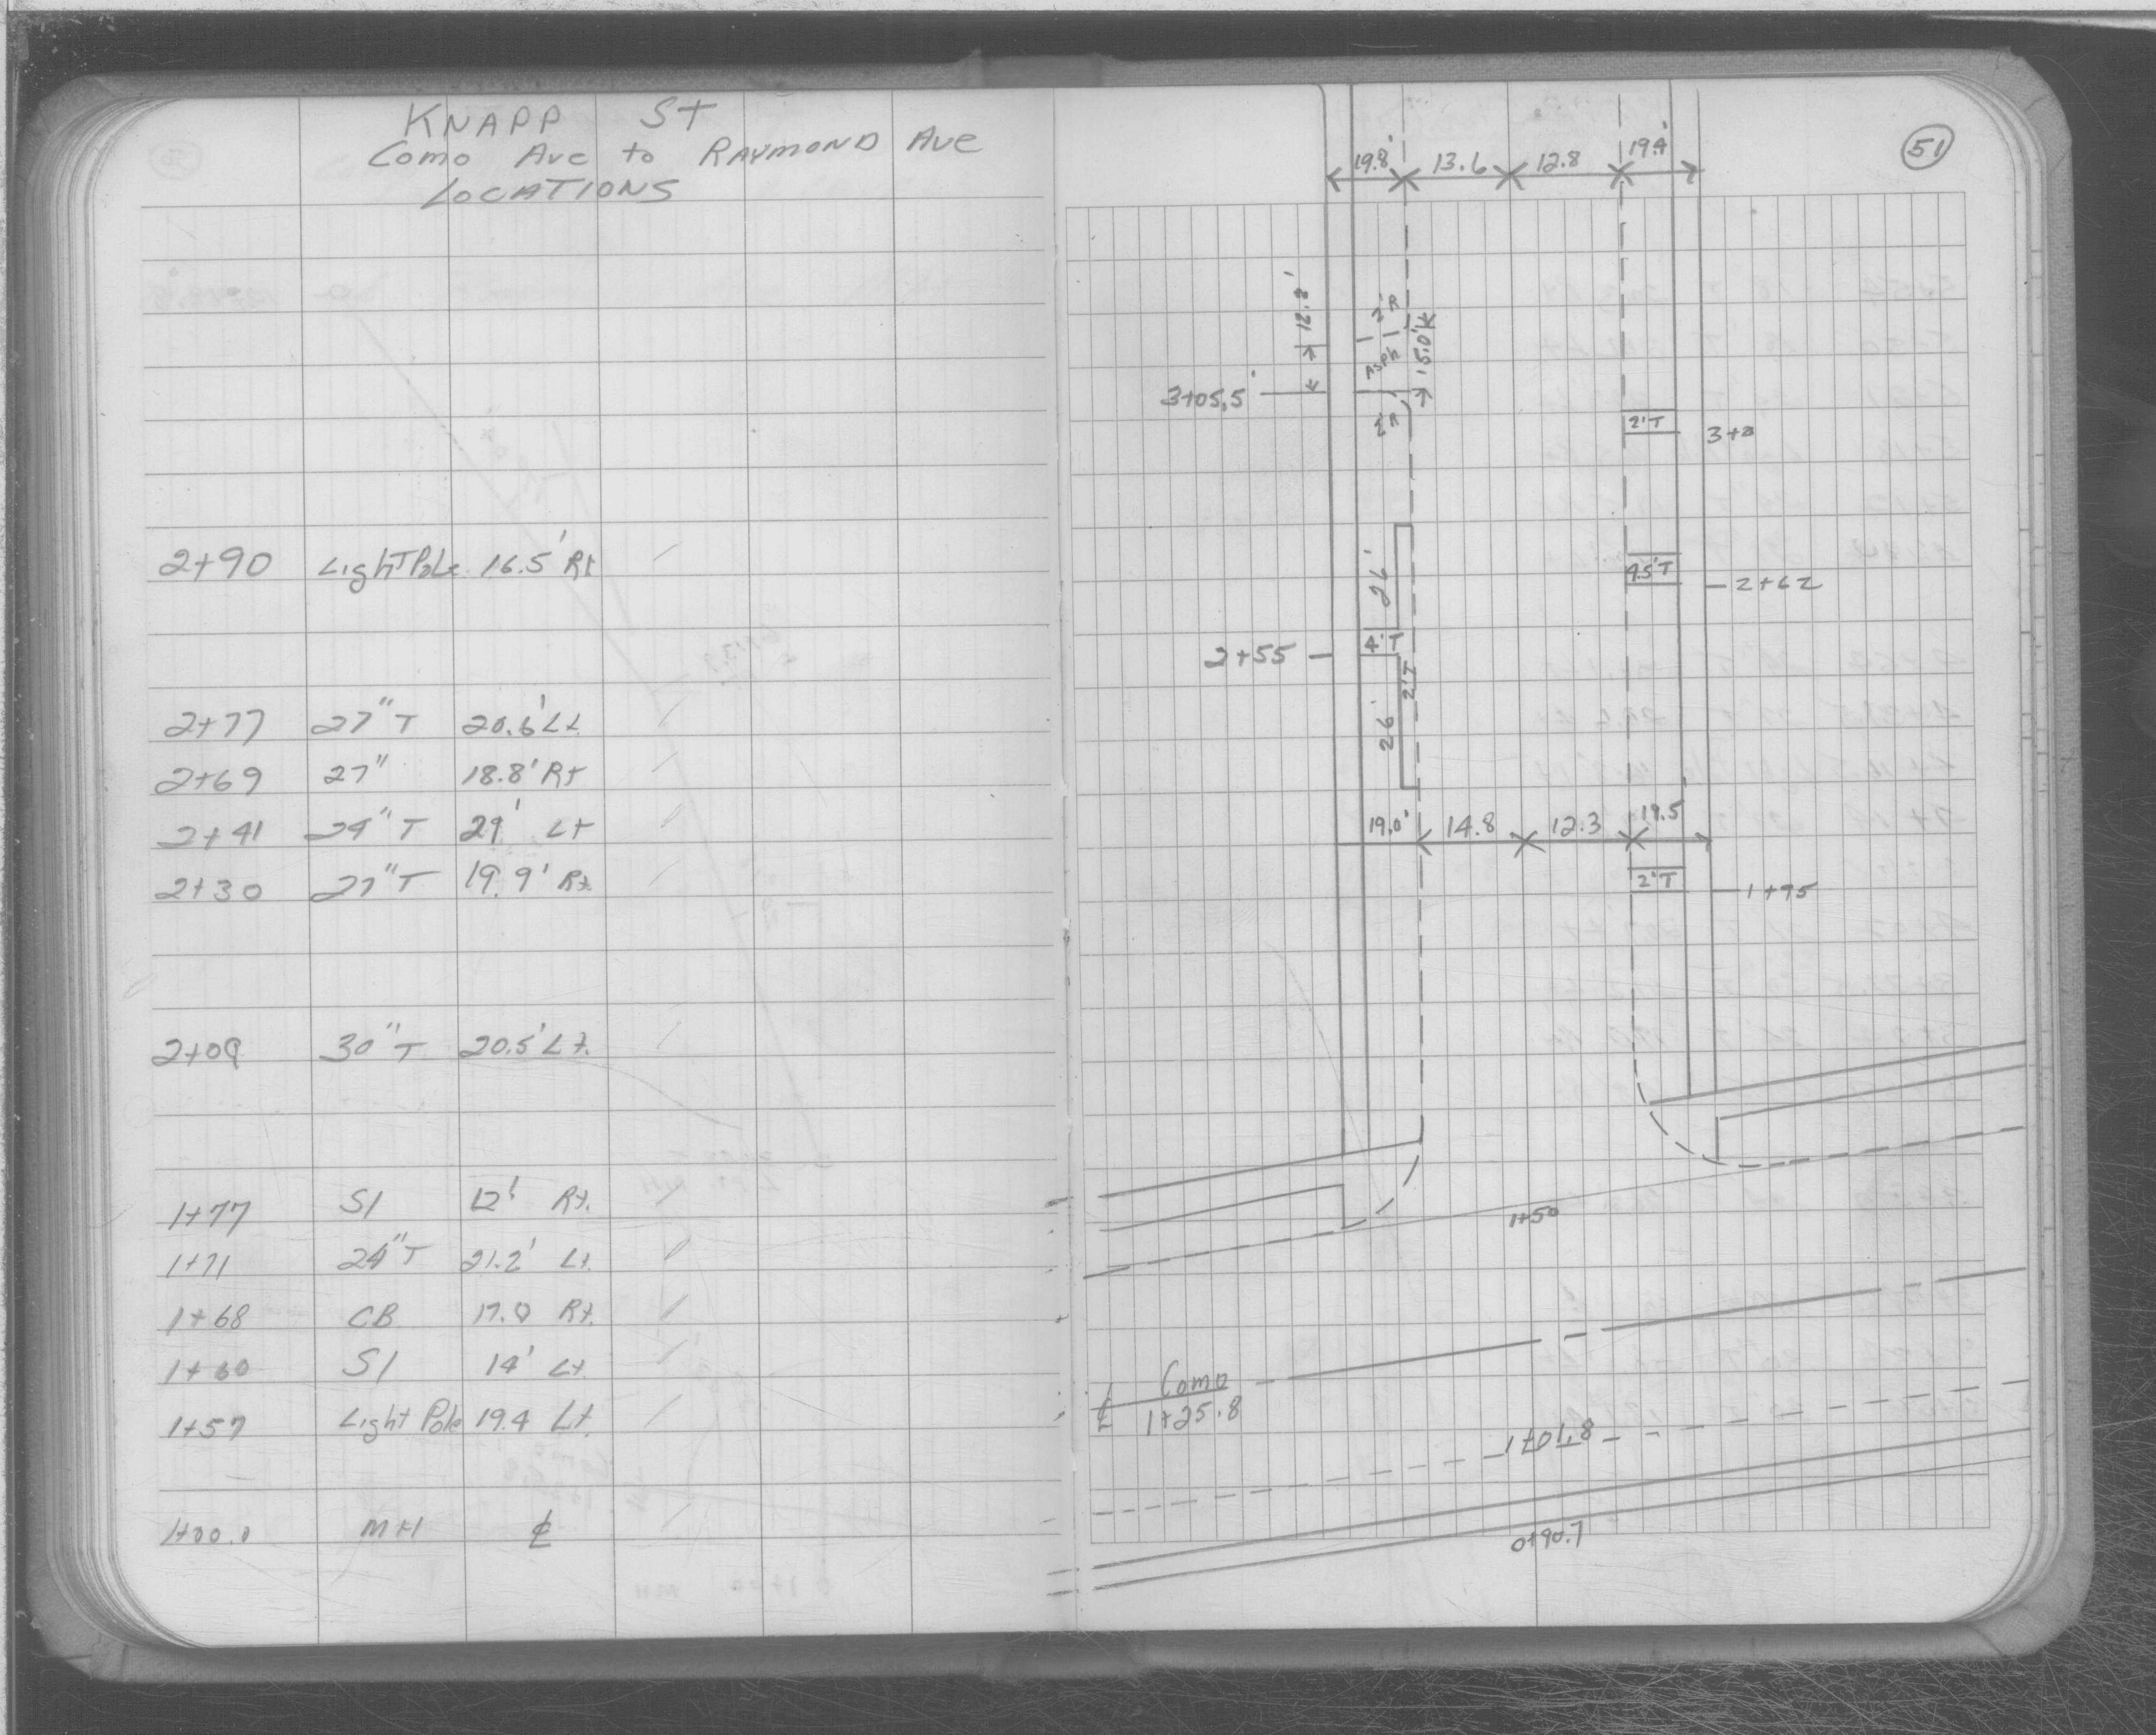 KNAPP ST
Como Ave to RAYMOND Ave
LOCATIONS
2+90 LighTPole 16.5' Rt
2+77 27" T 20.6' Lt
2+69 27" 18.8' Rt
2+41 24" T 21' Lt
2+30 27" T 19.9' Rt
2+09 30" T 20.5' Lt.
1+77 SI 12' Rt.
1+71 24" T 21.2' Lt.
1+68 CB 17.0 Rt.
1+60 SI 14' Lt
1+57 Light Pole 19.4 Lt.
1+00.0 MH ℄
51
19.8' 13.6 12.8 19.4'
12.8'
2'R
Asph
15.0'
3+05.5'
2'R
2'T
26'
9.5'T 2+62
4'T
2+55
2'T
26'
19.0' 14.8 12.3 19.5
2'T 1+95
1+50
℄ Como
1+25.8
1+01.8
0+90.7